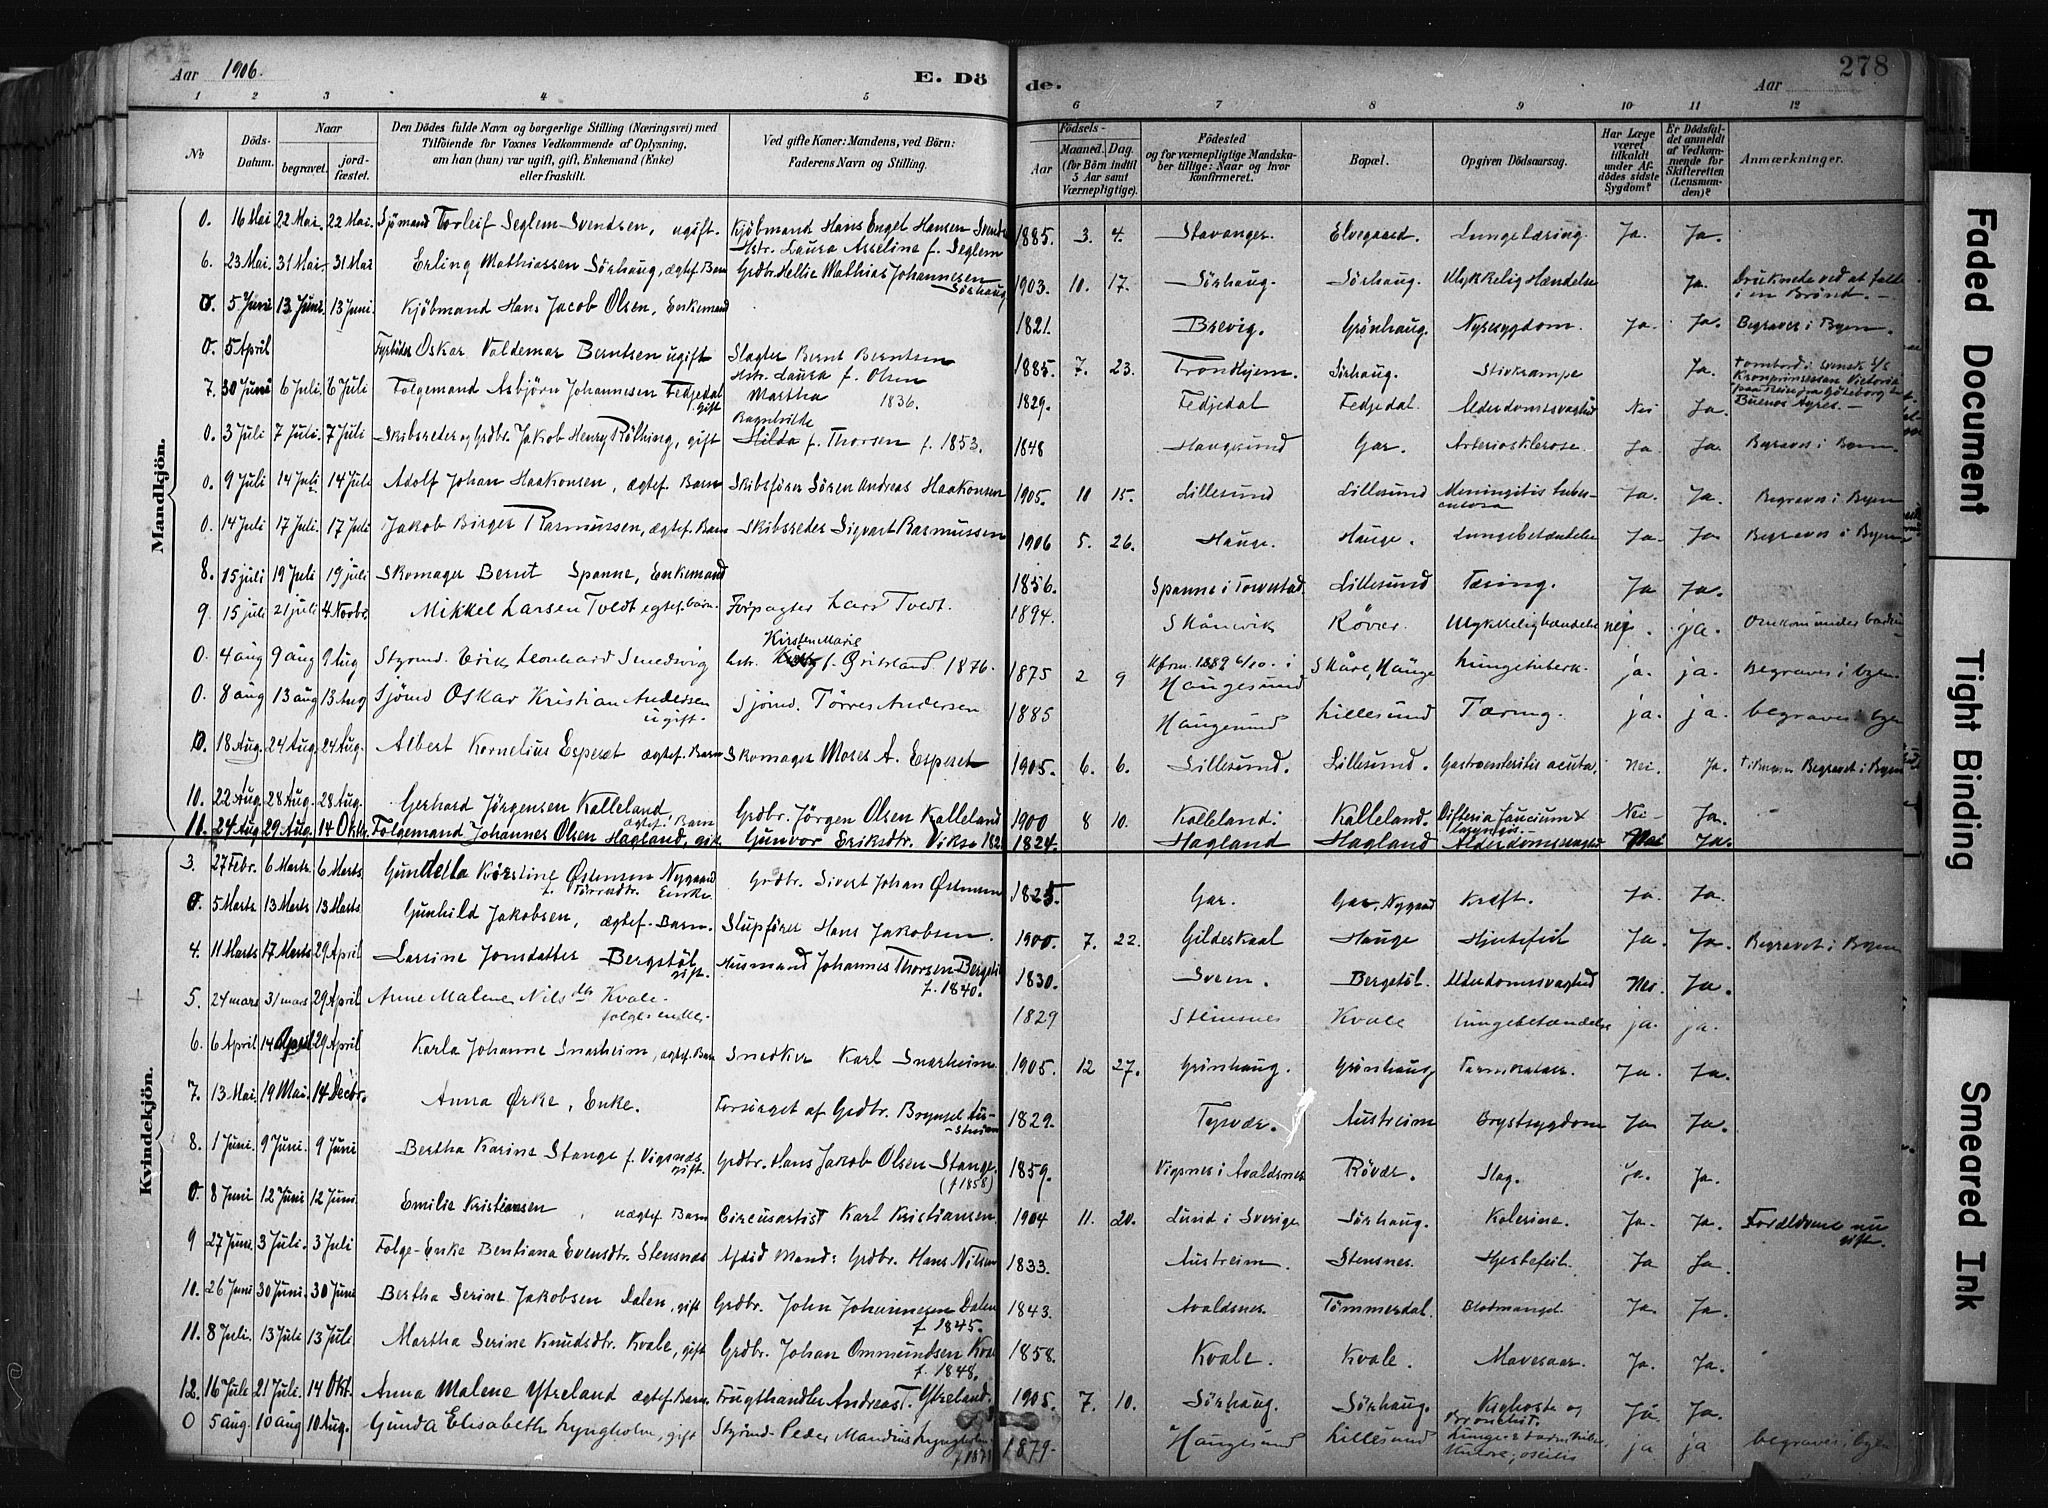 Aar 1906. E. Dö
de. Aar 278
1 2 3 4 5 6 7 8 9 10 11 12
No
Döds-Datum.
Naar
begravet.
jord-fæstet.
Den Dödes fulde Navn og borgerlige Stilling (Næringsvei) med
Tilföiende for Voxnes Vedkommende af Oplysning,
om han (hun) var ugift, gift, Enkemand (Enke)
eller fraskilt.
Ved gifte Koner: Mandens, ved Börn:
Faderens Navn og Stilling.
Födsels-
Aar
Maaned. Dag.
(for Börn indtil
5 Aar samt
Værnepligtige).
Födested
og for værnepligtige Mandska-
ber tillige: Naar og hvor
konfirmeret.
Bopæl.
Opgiven Dödsaarsag.
Har Læge
været
tilkaldt
under Af-
dödes sidste
Sygdom?
Er Dödsfal-
det anmeldt
af Vedkom-
mende for
Skifteretten
(Lensman-
den)?
Anmærkninger.
Mandkjön.
0. 16 Mai 22 Mai. 22 Mai. Sjömand Torleif Seglem Svendsen, ugift. Kjöbmand Hans Engel Hansen Hstr. Laura Asseline f. Seglem 1885. 3. 4. Stavanger. Elvegaard. Lungetæring. Ja. Ja.
6. 23 Mai. 31 Mai 31 Mai Erling Mathiassen Sörhaug, ægtef. Barn Grdbr. Mathias Johannesen Sörhaug 1903. 10. 17. Sörhaug. Sörhaug. Ulykkelig Hændelse Ja. Druknede ved at falde i en Brönd.
0. 5 Juni 13 Juni. 13 Juni. Kjöbmand Hans Jacob Olsen, Enkemand 1821. Brevig. Grönhaug. Nyresygdom. Ja. Ja. Begraves i Byen.
0. 5 April Fyrböder Oskar Valdemar Berntsen ugift Slagter Bernt Berntsen Hstr. Laura f. Olsen 1885. 7. 23. Trondhjem. Sörhaug. Stivkrampe Ja. ombord i svensk S/S Kronprinsessan Victoria paa Reise fra Göteborg til Buenos Ayres.
7. 30 Juni 6 Juli. 6 Juli Folgemand Asbjörn Johannesen Fedjedal gift Martha 1836. 1829. Fedjedal Fedjedal. Alderdomssvaghed Nei Ja.
0. 3 Juli 7 Juli. 7 Juli Skibsreder og Grdbr. Jakob Henry Röthing, gift Hilda f. Thorsen f. 1853. 1848 Haugesund Gar. Arteriosklerose. Ja Ja. Begraves i Byen
0. 9 Juli 14 Juli 14 Juli Adolf Johan Haakonsen, ægtef. Barn Skibsförer Sören Andreas Haakonsen 1905. 10 15. Lillesund Lillesund Meningitis tuberculosa Ja. Ja. Begraves i Byen
0. 14 Juli 17 Juli. 17 Juli Jakob Birger Rasmussen, ægtef. Barn Skibsreder Sigvart Rasmussen 1906 5. 26. Hauge. Hauge. Lungebetændelse Ja. Ja Begraves i Byen
8. 15 juli 19 Juli 19 juli Skomager Bernt Spanne, Enkemand 1856. Spanne i Torvestad. Lillesund Tæring. Ja Ja.
9. 15 juli 21 juli 4 Novbr. Mikkel Larsen Tvedt egtef. barn. Forpagter Lars Tvedt. 1894. Skånevik Rövær. Ulykkelig hændelse nei. ja. Omkom under
0. 4 aug 9 aug 9 Aug Styrmd. Erik Leonhard Smedsvig hstr. Kirsten Marie f. Qvitsland 1876. 1875 2 9 Kfrm. 1889 6/10. i Haugesund Skåre, Hauge Lungetuberk. ja. ja. Begraves i byen.
0. 8 aug 13 aug 13 Aug Sjömd Oskar Kristian Andersen ugift. Sjömd. Törres Andersen 1885 Haugesund Lillesund Tæring. ja. ja. begraves i byen
0. 18 Aug. 24 Aug. 24 Aug. Albert Kornelius Espeset ægtef. Barn Skomager Moses A. Espeset 1905. 6. 6. Lillesund. Lillesund. Gastroenteritis acuta, Nei. Ja. Begravet i Byen
10. 22 Aug. 28 Aug. 28 Aug. Gerhard Jörgensen Kalleland, ægtef. Barn Grdbr. Jörgen Olsen Kalleland 1900 8 10. Kalleland. Kalleland. Difteria faucium & laryngis. Nei Ja.
11. 24 Aug 29 Aug. 14 Oktr. Folgemand Johannes Olsen Hagland, gift Gunvor Eriksdtr. Vikse 1824. Hagland Hagland Alderdomssvaghed Nei Ja.
Kvindekjön.
3. 27 Febr. 6 Marts 6 Marts Gundella Kirstine Östensen Nygaard f. Enke. Grdbr. Sivert Johan Östensen 1825. Gar. Gar, Nygård Kræft. Ja Ja.
0. 5 Marts 13 Marts 13 Marts Gunhild Jakobsen, ægtef. Barn. Slupförer Hans Jakobsen. 1900. 7. 22. Gildeskaal Hauge Hjertefeil Ja. Ja. Begravet i Byen
4. 11 Marts 17 Marts 29 April Larsine Jonsdatter Bergstöl gift. Husmand Johannes Thorsen f. 1840. 1830. Sveen. Bergstöl. Alderdomssvaghed Nei. Ja.
5. 24 mars 31 mars 29 April Anne Malene Nilsdtr. Kvale. folgeenke. 1829 Stensnes Kvale Lungebetændelse ja. ja.
6. 6 April 14 April 29 April Karla Johanne Snarheim, ægtef. Barn Snedker Karl Snarheim 1905. 12 27. Grönhaug. Grönhaug Tarmkatarr. Ja. Ja.
7. 13 Mai. 19 Mai. 14 Decbr. Anna Ørke, Enke. Forsörget af Grdbr. Brynjel Austreim 1829. Tysvær. Austreim Brystsygdom Ja Ja.
8. 1 Juni. 9 Juni. 9 Juni Bertha Karine Stange f. Vigsnes gift. Grdbr. Hans Jakob Olsen Stange (f 1858) 1859. Vigsnes i Avaldsnes Rövær. Slag. Ja. Ja.
0. 8 Juni 12 Juni 12 Juni Emilie Kristiansen, uægtef. Barn Circusartist Karl Kristiansen. 1904 11. 20. Lund i Sverige Sörhaug. Kolerine. Ja. Ja. Forældrene nu gifte.
9 27 Juni. 3 Juli. 3 Juli Folge-Enke Bentiana Evensdtr. Stensnæs Afdöd Mand: Grdbr. Hans Nilsen 1833. Austreim. Stensnes. Hjertefeil. Ja Ja.
10. 26 Juni 30 Juni. 30 Juni Bertha Serine Jakobsen Dalen, gift Grdbr. John Johannesen Dalen f. 1845. 1843. Avaldsnes. Tömmerdal. Blodmangel. Ja. Ja.
11. 8 Juli. 13 Juli 13 Juli Martha Serine Knudsdtr. Kvale, gift Grdbr. Johan Ommundsen f. 1848. 1858. Kvale. Kvale. Mavesaar. Ja. Ja.
12. 16 Juli 21 Juli. 14 Okt. Anna Malene Ytreland ægtef. Barn. Frugthandler Andreas T. Ytreland. 1905. 7. 10. Sörhaug. Sörhaug. Kighoste og Bronchit. Ja. Ja.
0 5 aug 10 aug 10 Aug. Gunda Elisabeth Lyngholm, gift Styrmd. Peder Mandius Lyngholm 1879. Haugesund Lillesund ja ja begraves i byen
Faded Document
Tight Binding
Smeared Ink